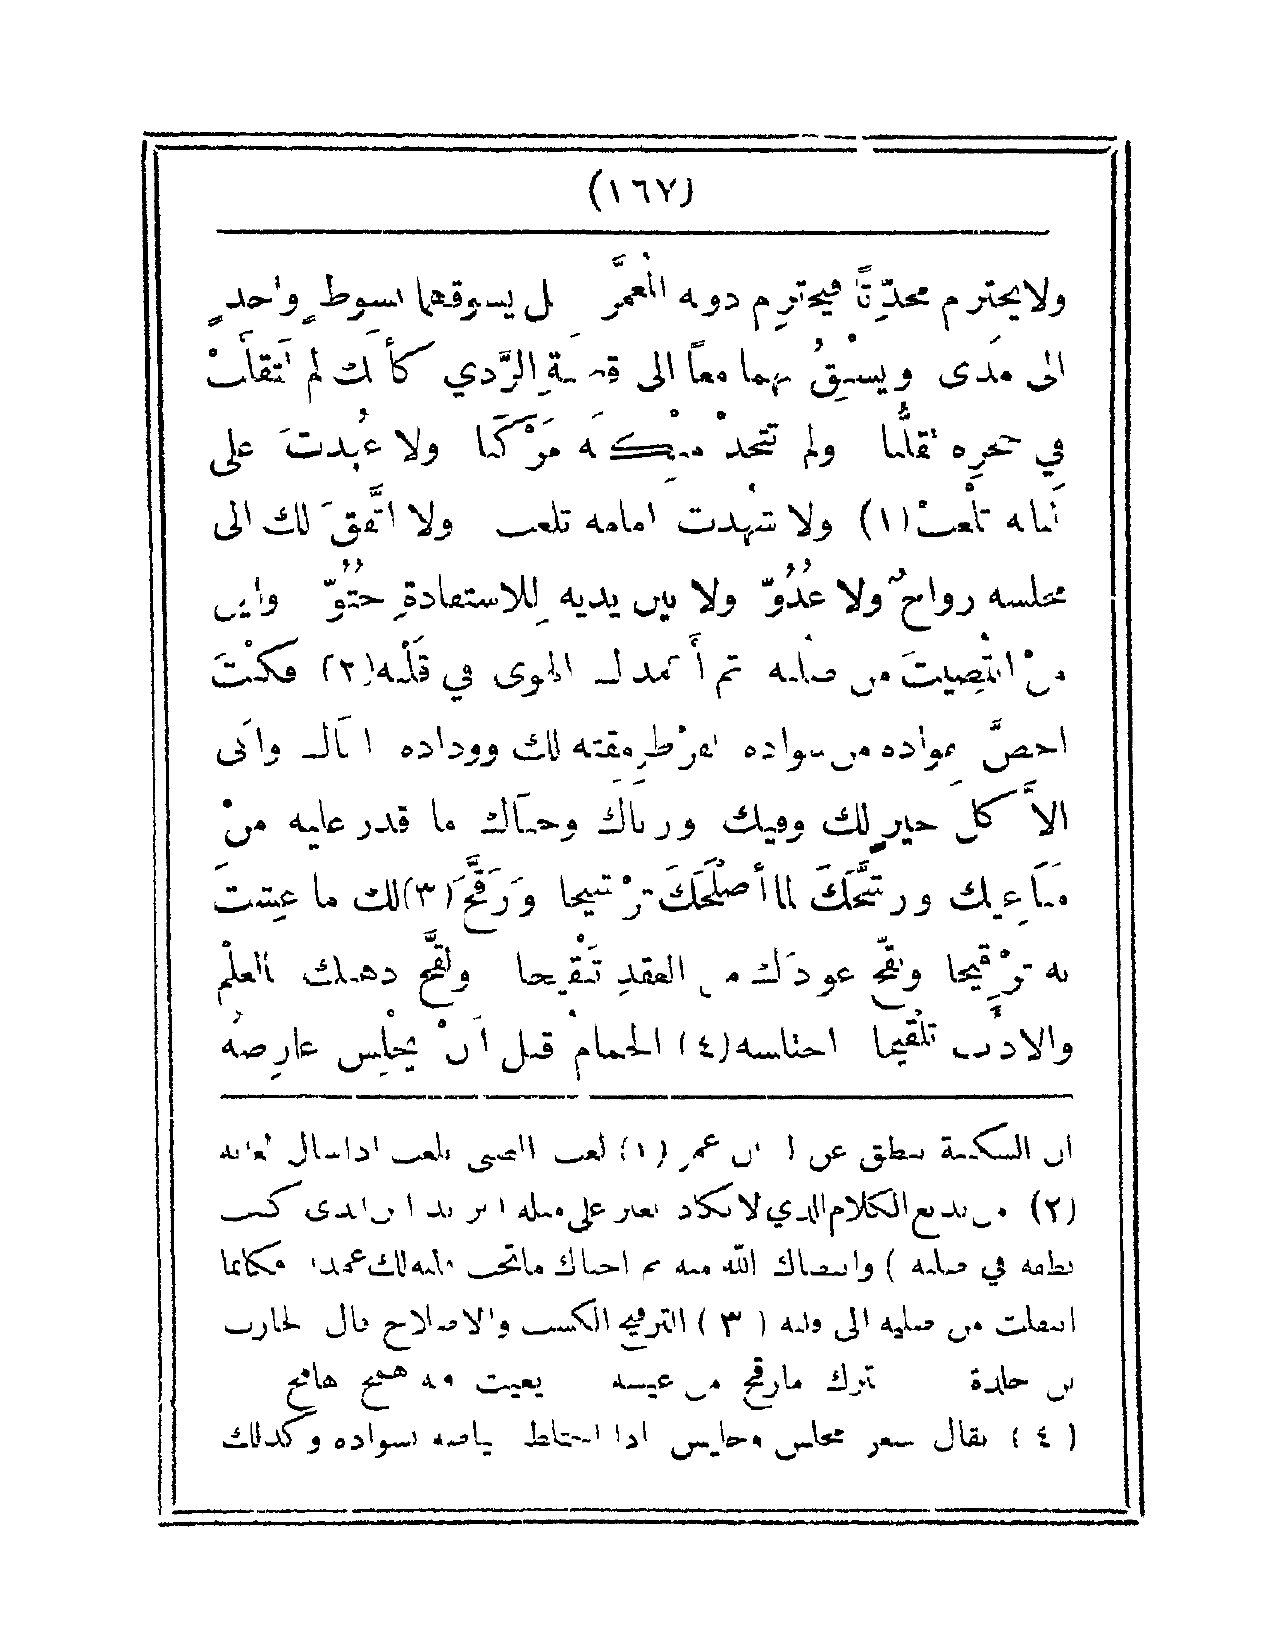 (١٦٧)
ولا يحترم محدّثًا فيحترم دونه المُعمَّر بل يسوقهما بسوطٍ واحدٍ
الى مَدى ويسبقُ بهما معاً الى قصبةِ الرَّدي كأنك لم تتقلَّبْ
في حجرِه تقلُّبا ولم تتخذْ منكبَه مَرْكَبا ولا عُبدتَ على
لباته تلعبْ(١) ولا شهدت امامه تلعب ولا اتَّفقَ لك الى
مجلسه رواحٌ ولا غدُوّ ولا بين يديه للاستفادةِ حتُوّ واين
منْ انتُصيتَ من صلبه ثم أُعمد لك الهوى في قلْبه(٢) فكنْتَ
احصَّ بفؤاده من سواده لفرْطِ مِقته لك ووداده ابالك وانى
الاّ كل خيرٍ لك وفيك وربّاك وحباك ما قدر عليه منْ
مساعيك ورشَّحَكَ لما أصْلَحَكَ ترْشيحا ورَقَّحَ(٣)لك ما عشتَ
به ترْقيحا ونقّح عودك من العقد تَنْقيحا ولقَّح ذهنك بالعلْم
والادبِ تلْقيحا احتلسه(٤) الحمامُ قبل أنْ يُخْلِس عارضُه
ان السكينة ينطق عن ابن عمر (١) لعب الصبى يلعب اذا سال لعابه
(٢) من بديع الكلام الذي لا يكاد يعثر على مثله ابن يد ابن الذى كنت
نطفه في صلبه ) وانتصاك الله منه ثم احباك ماتحب قلبه لك عمدا فكانما
انتقلت من صلبه الى قلبه ( ٣ ) الترقيح الكسب والاصلاح قال الحارث
بن حلزة يترك مارقح من عيشه يعيث فيه همج هامج
( ٤ ) يقال شعر مخلس وخليس اذا اختلط بياضه بسواده وكذلك